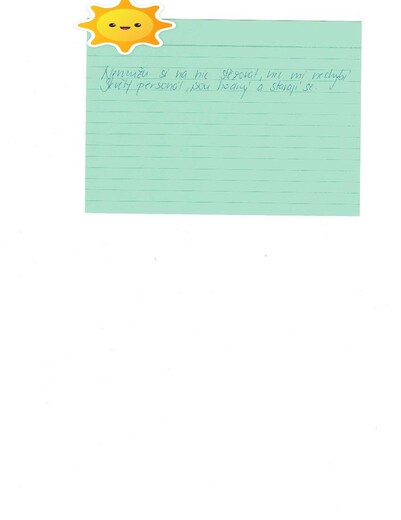 Nemůžu si na nic stěžovat, nic mi nechybí
Skvělý personál, jsou hodný a starají se